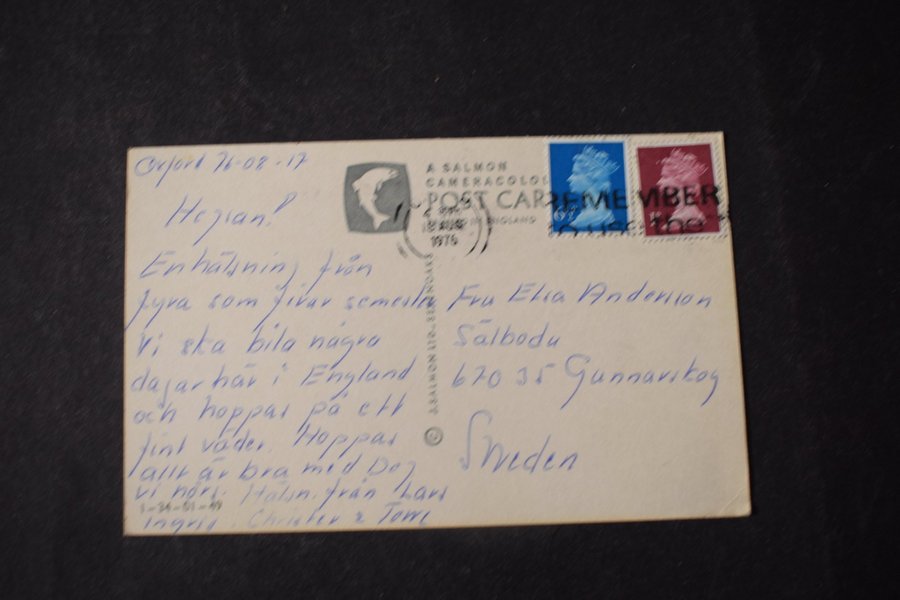 Oxford 76-08-17
Hejsan!
En hälsning från
fyra som firar semester
Vi ska bila några
dagar här i England
och hoppas på ett
fint väder. Hoppas
allt är bra med Dej
vi hörs. Hälsn. från Lars
Ingrid. Christer & Tove
1-34-01-49
A SALMON
CAMERACOLOUR
POST CARD
IN ENGLAND
1976
REMEMBER
© J. SALMON LTD., SEVENOAKS
Fru Elsa Andersson
Sälboda
670 35 Gunnarskog
Sweden